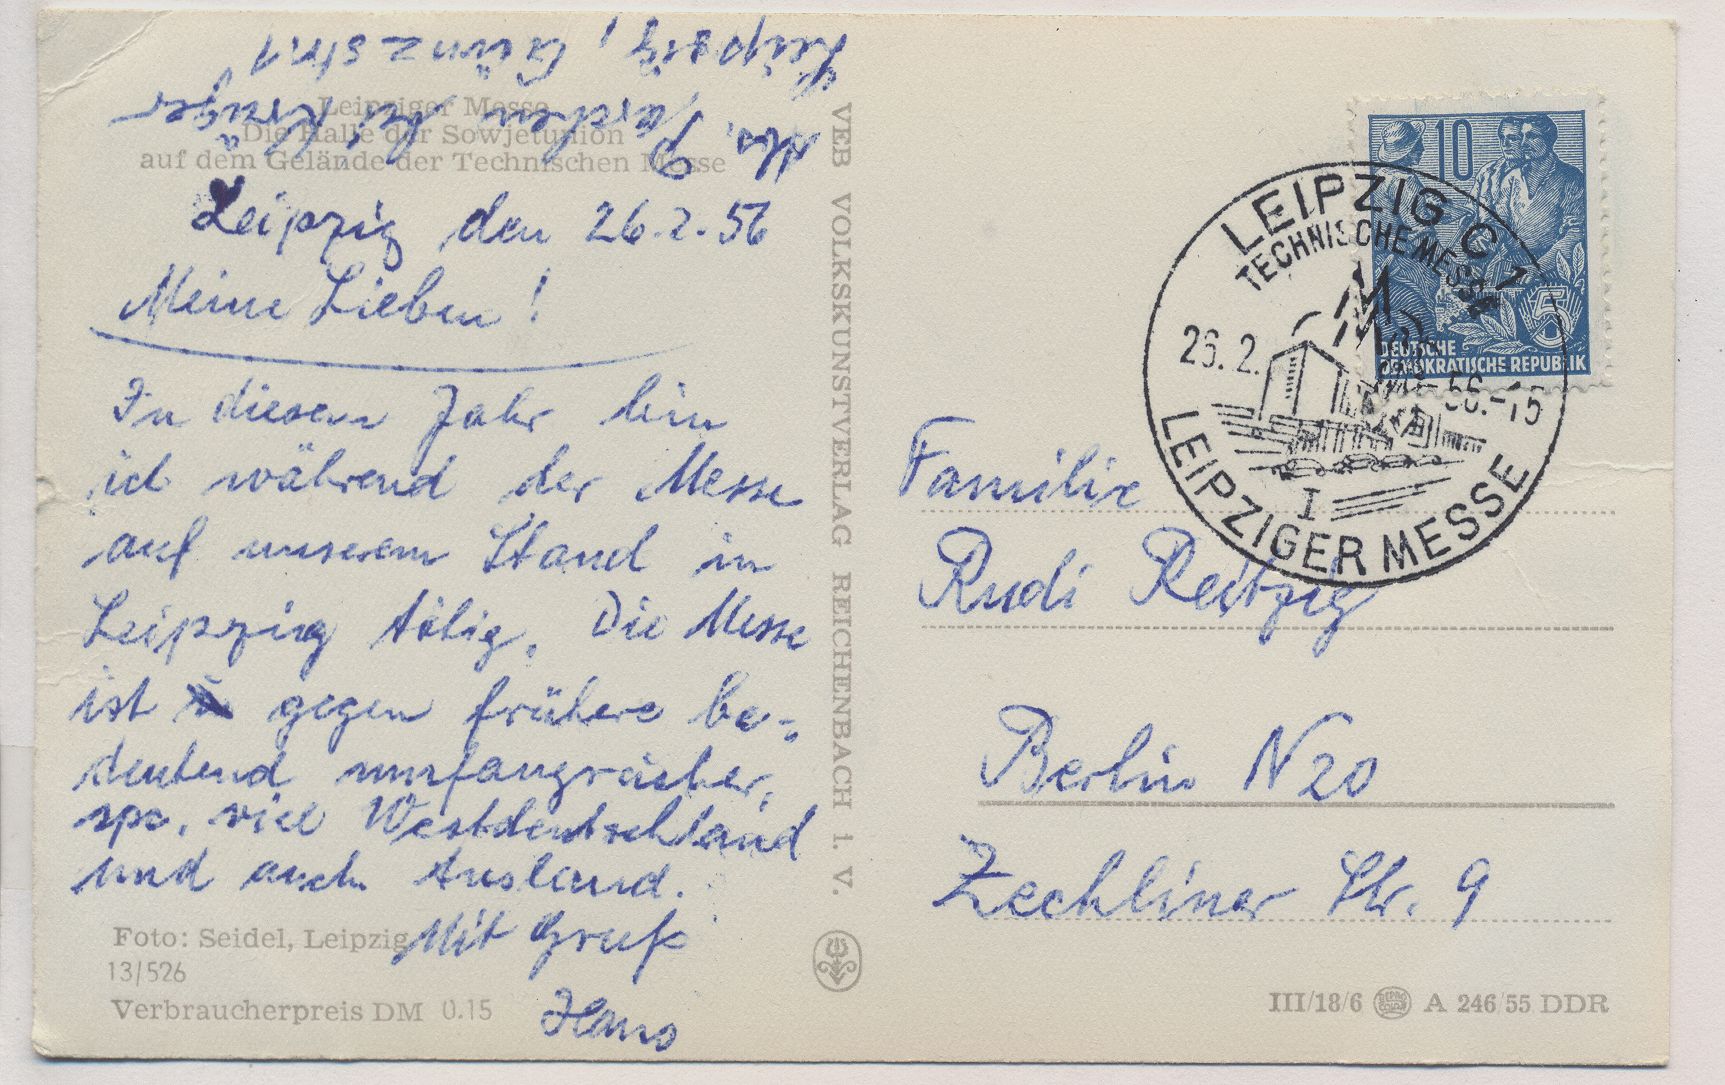 Abs. Parchen bei Krüger
Leipzig, Günzstr. 1
Leipziger Messe
Die Halle der Sowjetunion
auf dem Gelände der Technischen Messe
Leipzig den 26.2.56
Meine Lieben!
In diesem Jahr bin
ich während der Messe
auf unserem Stand in
Leipzig tätig. Die Messe
ist gegen frühere be-
deutend umfangreicher,
spez. viel Westdeutschland
und auch Ausland.
Mit Gruß
Hans
Foto: Seidel, Leipzig
13/526
Verbraucherpreis DM 0.15
VEB VOLKSKUNSTVERLAG REICHENBACH i. V.
10
+5
DEUTSCHE
DEMOKRATISCHE REPUBLIK
LEIPZIG C 1
TECHNISCHE MESSE
26. 2. 56.-15
I
LEIPZIGER MESSE
Familie
Rudi Reitzig
Berlin N 20
Zechliner Str. 9
III/18/6 A 246/55 DDR